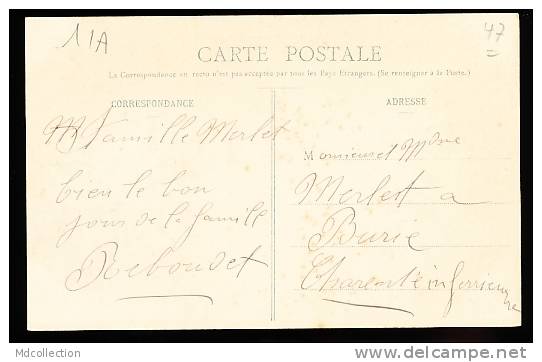 11A
47
CARTE POSTALE
La Correspondance au recto n'est pas acceptée par tous les Pays Etrangers. (Se renseigner à la Poste.)
CORRESPONDANCE
ADRESSE
Famille Merlet
bien le bon
jour de la famille
Reboudet
Monsieur et Mme
Merlet a
Burie
Charente inferrieure
Mdcollection
http://www.delcampe.net